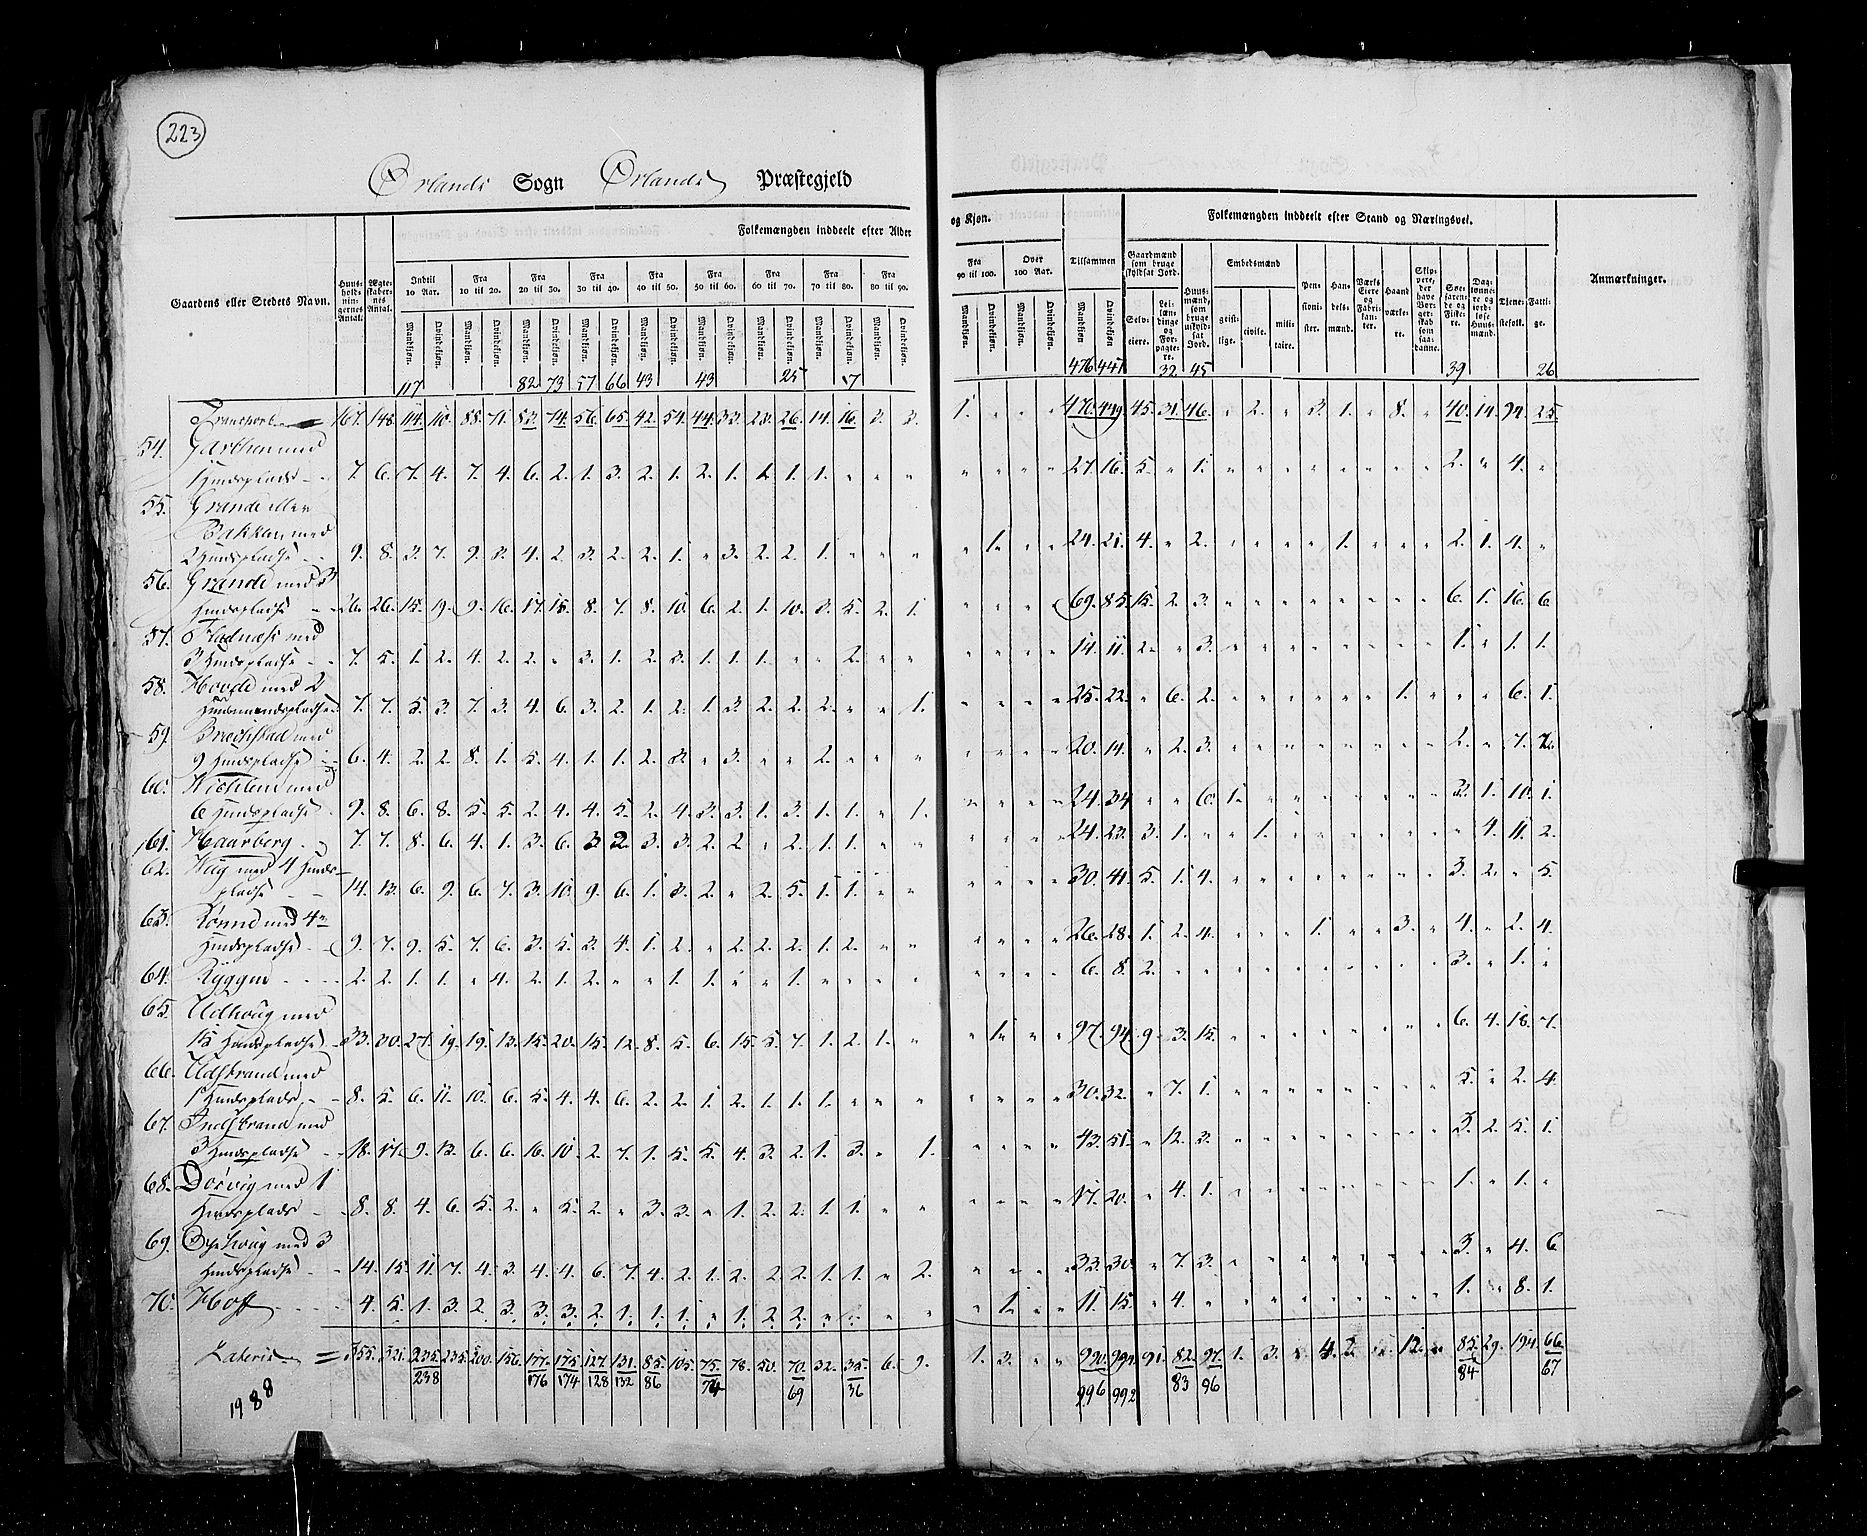 223
Ørlands Sogn Ørlands Præstegjeld
Gaardens eller Stedets Navn.
Huus-holdnin-gernes Antal.
Ægte-skaber-nes Antal.
Folkemængden inddeelt efter Alder
og Kjøn.
Folkemængden inddeelt efter Stand og Næringsvei.
Anmærkninger.
Indtil 10 Aar. Fra 10 til 20. Fra 20 til 30. Fra 30 til 40. Fra 40 til 50. Fra 50 til 60. Fra 60 til 70. Fra 70 til 80. Fra 80 til 90.
Fra 90 til 100. Over 100 Aar. Tilsammen
Mandkjøn. Qvindekjøn.
Gaardmænd som bruge skyldsat Jord.
Selv-eiere. Lei-læn-dinge og For-pagte-re.
Huus-mænd, som bruge uskyld-sat Jord.
Embedsmænd
geist-lige. civile. mili-taire.
Pen-sioni-ster. Han-dels-mænd. Værks Eiere og Fabri-kan-ter. Haand-værke-re. Skip-pere, der have Bor-ger-skab som saa-danne. Søe-faren-de og Fiske-re. Dag-lønne-re og jord-løse Huus-mænd. Tjene-stefolk. Fatti-ge.
117 82 73 57 66 43 43 25 17 476 441 32 45 39 26
Transport 167. 148. 114. 110. 88. 71. 83. 74. 56. 65. 42. 54. 44. 33. 28. 26. 14. 16. 3. 3. 1. 470. 449. 45. 31. 46. 2. 3. 1. 8. 40. 14. 94. 25.
54. Garthen med
1 Huusplads 7. 6. 7. 4. 7. 4. 6. 2. 1. 3. 2. 1. 2. 1. 1. 1. 1. 27. 16. 5. 1. 2. 4.
55. Grande eller
Bakken med
2 Huuspladse 9. 8. 3. 7. 9. 3. 4. 2. 3. 2. 2. 1. 3. 2. 2. 1. 1. 24. 21. 4. 2. 1. 2. 1. 4.
56. Grande med 3
Huuspladse 26. 26. 15. 19. 9. 16. 17. 15. 8. 7. 8. 10. 6. 2. 1. 10. 3. 5. 2. 1. 69. 85. 15. 2. 3. 6. 1. 16. 6.
57. Fladnæss med
3 Huuspladse 7. 5. 1. 2. 4. 2. 2. 3. 1. 2. 3. 1. 1. 1. 2. 14. 11. 2. 3. 1. 1. 1.
58. Hovde med 2
Huusmandspladse 7. 7. 5. 3. 7. 3. 4. 6. 3. 2. 1. 2. 1. 3. 2. 2. 2. 1. 25. 22. 6. 2. 1. 6. 1.
59. Breistad med
9 Huuspladse 6. 4. 2. 2. 8. 1. 5. 4. 1. 1. 2. 3. 3. 2. 20. 14. 2. 3. 2. 7.
60. Viklem med
6 Huuspladse 9. 8. 6. 8. 5. 5. 2. 4. 4. 5. 2. 4. 3. 3. 1. 3. 1. 1. 1. 24. 34. 6. 1. 3. 1. 10. 1.
61. Haarberg 7. 7. 8. 6. 4. 1. 3. 6. 3 2. 3. 3. 2. 2. 2. 1. 1. 24. 23. 3. 1. 1. 4. 11. 2.
62. Uug med 4 Huus-
pladse 14. 13. 6. 9. 6. 7. 3. 10. 9. 6. 1. 3. 2. 2. 5. 1. 1. 30. 41. 5. 1. 4. 3. 2. 5.
63. Rønne med 4
Huuspladse 9. 7. 9. 5. 7. 6. 3. 5. 3. 4. 1. 2. 2. 2. 2. 1. 2. 26. 28. 1. 2. 4. 1. 3. 4. 2. 4.
64. Ryggen 2. 2. 1. 1. 4. 2. 1. 2. 1. 1. 1. 6. 8. 2. 3. 1.
65. Udhoug med
15 Huuspladse 33. 30. 27. 19. 19. 13. 15. 20. 15. 12. 8. 5. 6. 15. 5. 7. 1. 2. 1. 1. 97. 94. 9. 3. 15. 6. 4. 18. 7.
66. Udstrand med
1 Huusplads 8. 5. 6. 11. 10. 6. 5. 4. 4. 6. 2. 2. 1. 2. 1. 1. 1. 30. 32. 7. 1. 5. 2. 4.
67. Indstrand med
3 Huuspladse 18. 17. 9. 13. 6. 6. 16. 10. 2. 7. 1. 5. 5. 4. 3. 2. 1. 3. 1. 43. 51. 12. 3. 3. 2. 5. 1.
68. Dørvig med 1
Huusplads 8. 8. 4. 6. 5. 2. 5. 2. 3. 3. 1. 2. 2. 1. 1. 17. 20. 4. 1. 1. 1.
69. Ophoug med 3
Huuspladse 14. 15. 11. 7. 4. 3. 4. 4. 6. 7. 4. 2. 1. 2. 2. 2. 1. 1. 2. 33. 30. 7. 3. 3. 4. 6.
70. Hoff 4. 5. 1. 3. 2. 3. 3. 3. 2. 1. 1. 1. 1. 2. 2. 1. 11. 15. 4. 1. 8. 1.
Lateris 355. 321. 235. 235. 200. 156. 177. 175. 127. 131. 85. 105. 75. 78. 50. 70. 32. 35. 6. 9. 1. 3. 990. 994. 91. 82. 97. 1. 3. 4. 2. 12. 85. 29. 194. 66
238 176 174 128 132 86 74 69 36 996 992 83 96 84 67
1988